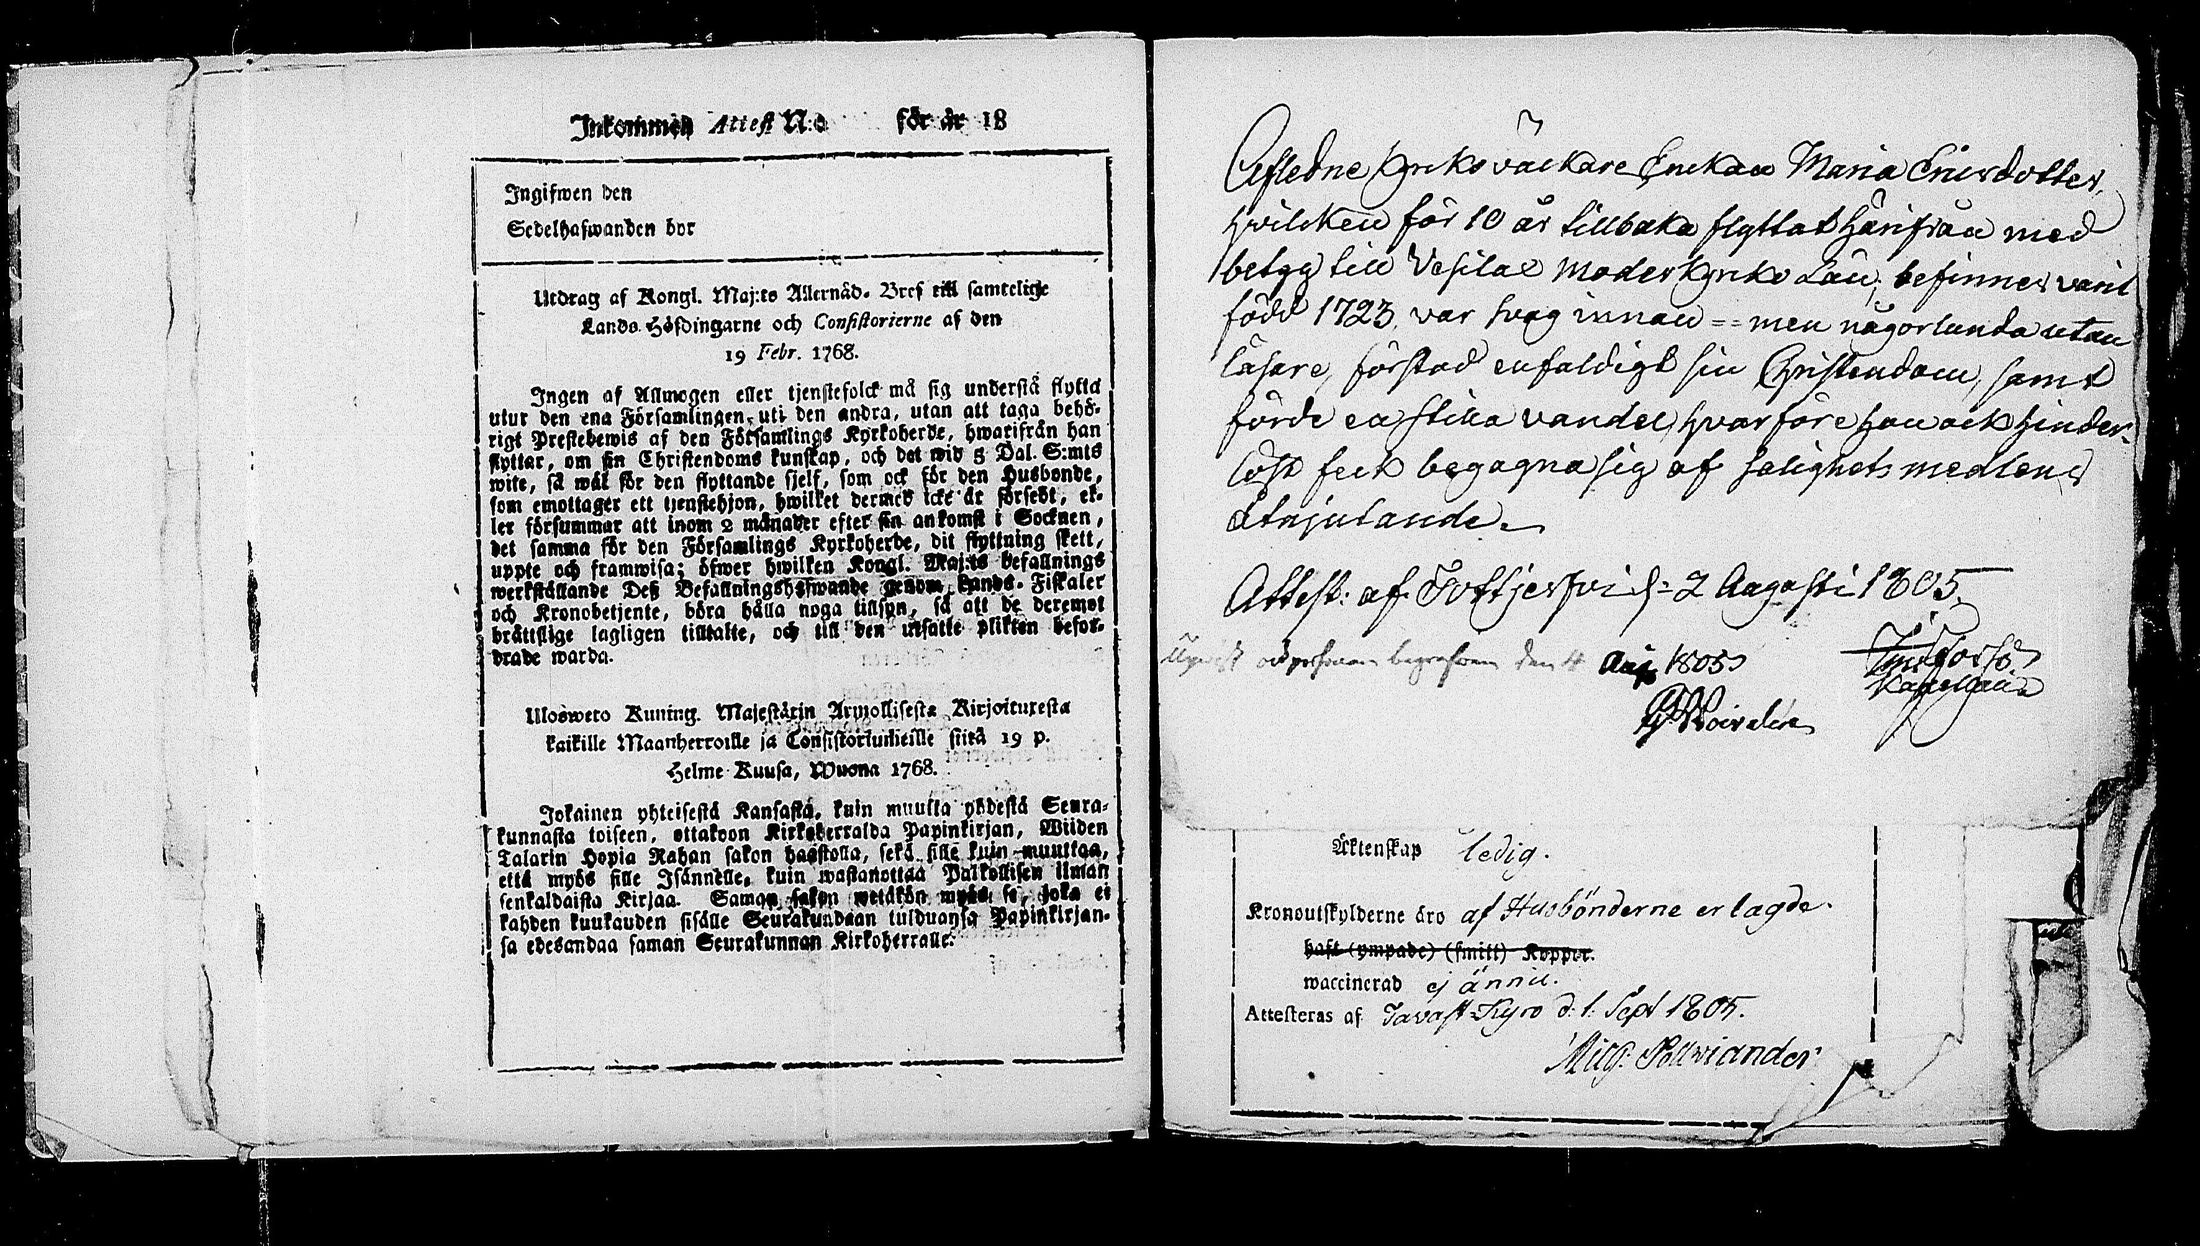 Inkommen Attest N:o för år 18
Ingifwen den
Sedelhafwanden bor
Utdrag af Kongl. Maj:ts Allernåd. Bref till samtelige
Lands-Höfdingarne och Consistorierne af den
19 Febr. 1768.
Ingen af Allmogen eller tjenstefolck må sig understå flytta
utur den ena Församlingen uti den andra, utan att taga behö-
rigt Prestebewis af den Församlings Kyrkoherde, hwarifrån han
flyttar, om sin Christendoms kunskap, och det wid 5 Dal. S:mts
wite, så wäl för den flyttande sjelf, som ock för den Husbonde,
som emottager ett tjenstehjon, hwilket dermed icke är försedt, el-
ler försummar att inom 2 månader efter sin ankomst i Socknen,
det samma för den Församlings Kyrkoherde, dit flyttning skett,
uppte och framwisa; öfwer hwilken Kongl. Maj:ts befallnings
werkställande Deß Befallningshafwande genom Lands-Fiskaler
och Kronobetjente, böra hålla noga tillsyn, så att de deremot
bråttslige lagligen tilltalte, och till den utsatte plikten befor-
drade warda.
Uloswero Kuning. Majestätin Armollisesta Kirjoituxesta
kaikille Maanherroille ja Consistoriumeille siitä 19 p.
Helme-Kuusa, Wuona 1768.
Jokainen yhteisestä Kansasta, kuin muutta yhdestä Seura-
kunnasta toiseen, ottakoon Kirkoherralda Papinkirjan, Wiiden
Talarin Hopia Rahan sakon haastolla, sekä sille kuin muuttaa,
että myös sille Isännelle, kuin wastanottaa Palkollisen ilman
senkaldaista Kirjaa. Saman sakon wetäkön myös se, joka ei
kahden kuukauden sisälle Seurakundaan tulduansa Papinkirjan-
sa edesandaa saman Seurakunnan Kirkoherralle.
Afledne Kyrkoväckare Enckan Maria Ericsdotter,
hvilcken för 10 år tillbaka flyttat härifrån med
betyg till Vesilax Moderkyrko Län, befinnes varit
född 1723, var svag innan == men någorlunda utan
läsare, förstod enfaldigt sin Christendom, samt
förde en stilla vandel, hvarföre hon ock hinder-
löst feck begagna sig af salighets medlens
åtnjutande.
Attest: af Tottjerfvi d: 2 Augusti 1805.
begrafwen den 4 Aug 1805
Kapellan
Äktenskap ledig.
Kronoutskylderne äro af Husbönderne erlagde.
haft (ympade) (smitt) Koppor.
waccinerad ej ännu.
Attesteras af Tavast-Kyro d: 1: Sept 1805.